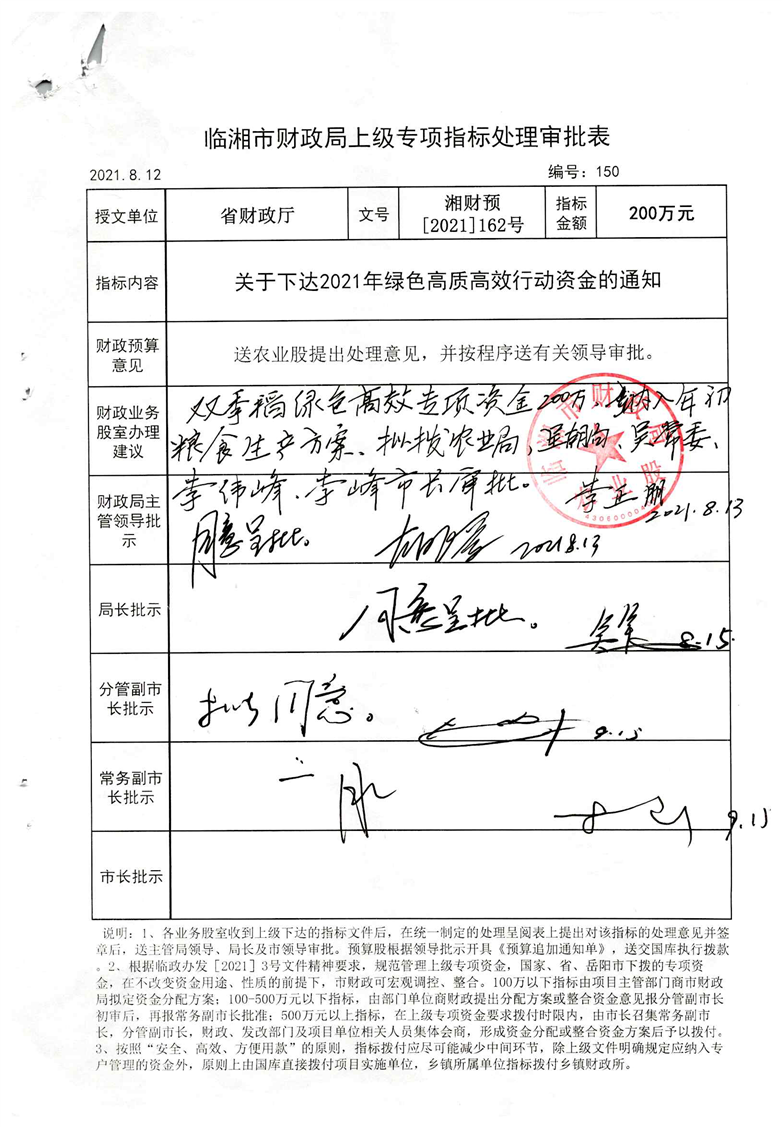 临湘市财政局上级专项指标处理审批表
2021.8.12 编号：150
授文单位 省财政厅 文号 湘财预[2021]162号 指标金额 200万元
指标内容 关于下达2021年绿色高质高效行动资金的通知
财政预算意见 送农业股提出处理意见，并按程序送有关领导审批。
财政业务股室办理建议
双季稻绿色高效专项资金200万、纳入年初
粮食生产方案、拟拨农业局，呈胡局、吴常委、
李伟峰、李峰市长审批。
2021.8.13
财政局主管领导批示
同意呈批。 2021.8.13
局长批示
同意呈批。 8.15
分管副市长批示
拟同意。 9.15
常务副市长批示
9.15
市长批示
说明：1、各业务股室收到上级下达的指标文件后，在统一制定的处理呈阅表上提出对该指标的处理意见并签
章后，送主管局领导、局长及市领导审批。预算股根据领导批示开具《预算追加通知单》，送交国库执行拨款
。2、根据临政办发[2021]3号文件精神要求，规范管理上级专项资金，国家、省、岳阳市下拨的专项资
金，在不改变资金用途、性质的前提下，市财政可宏观调控、整合。100万以下指标由项目主管部门商市财政
局拟定资金分配方案；100-500万元以下指标，由部门单位商财政提出分配方案或整合资金意见报分管副市长
初审后，再报常务副市长批准；500万元以上指标，在上级专项资金要求拨付时限内，由市长召集常务副市
长，分管副市长，财政、发改部门及项目单位相关人员集体会商，形成资金分配或整合资金方案后予以拨付。
3、按照“安全、高效、方便用款”的原则，指标拨付应尽可能减少中间环节，除上级文件明确规定应纳入专
户管理的资金外，原则上由国库直接拨付项目实施单位，乡镇所属单位指标拨付乡镇财政所。